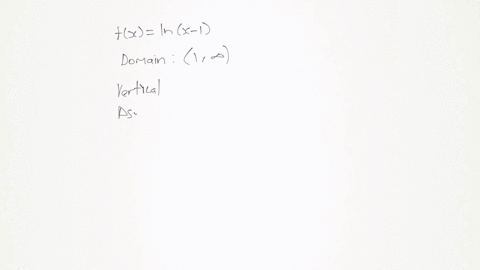 f(x) = ln(x-1)
Domain : (1, ∞)
Vertical
As